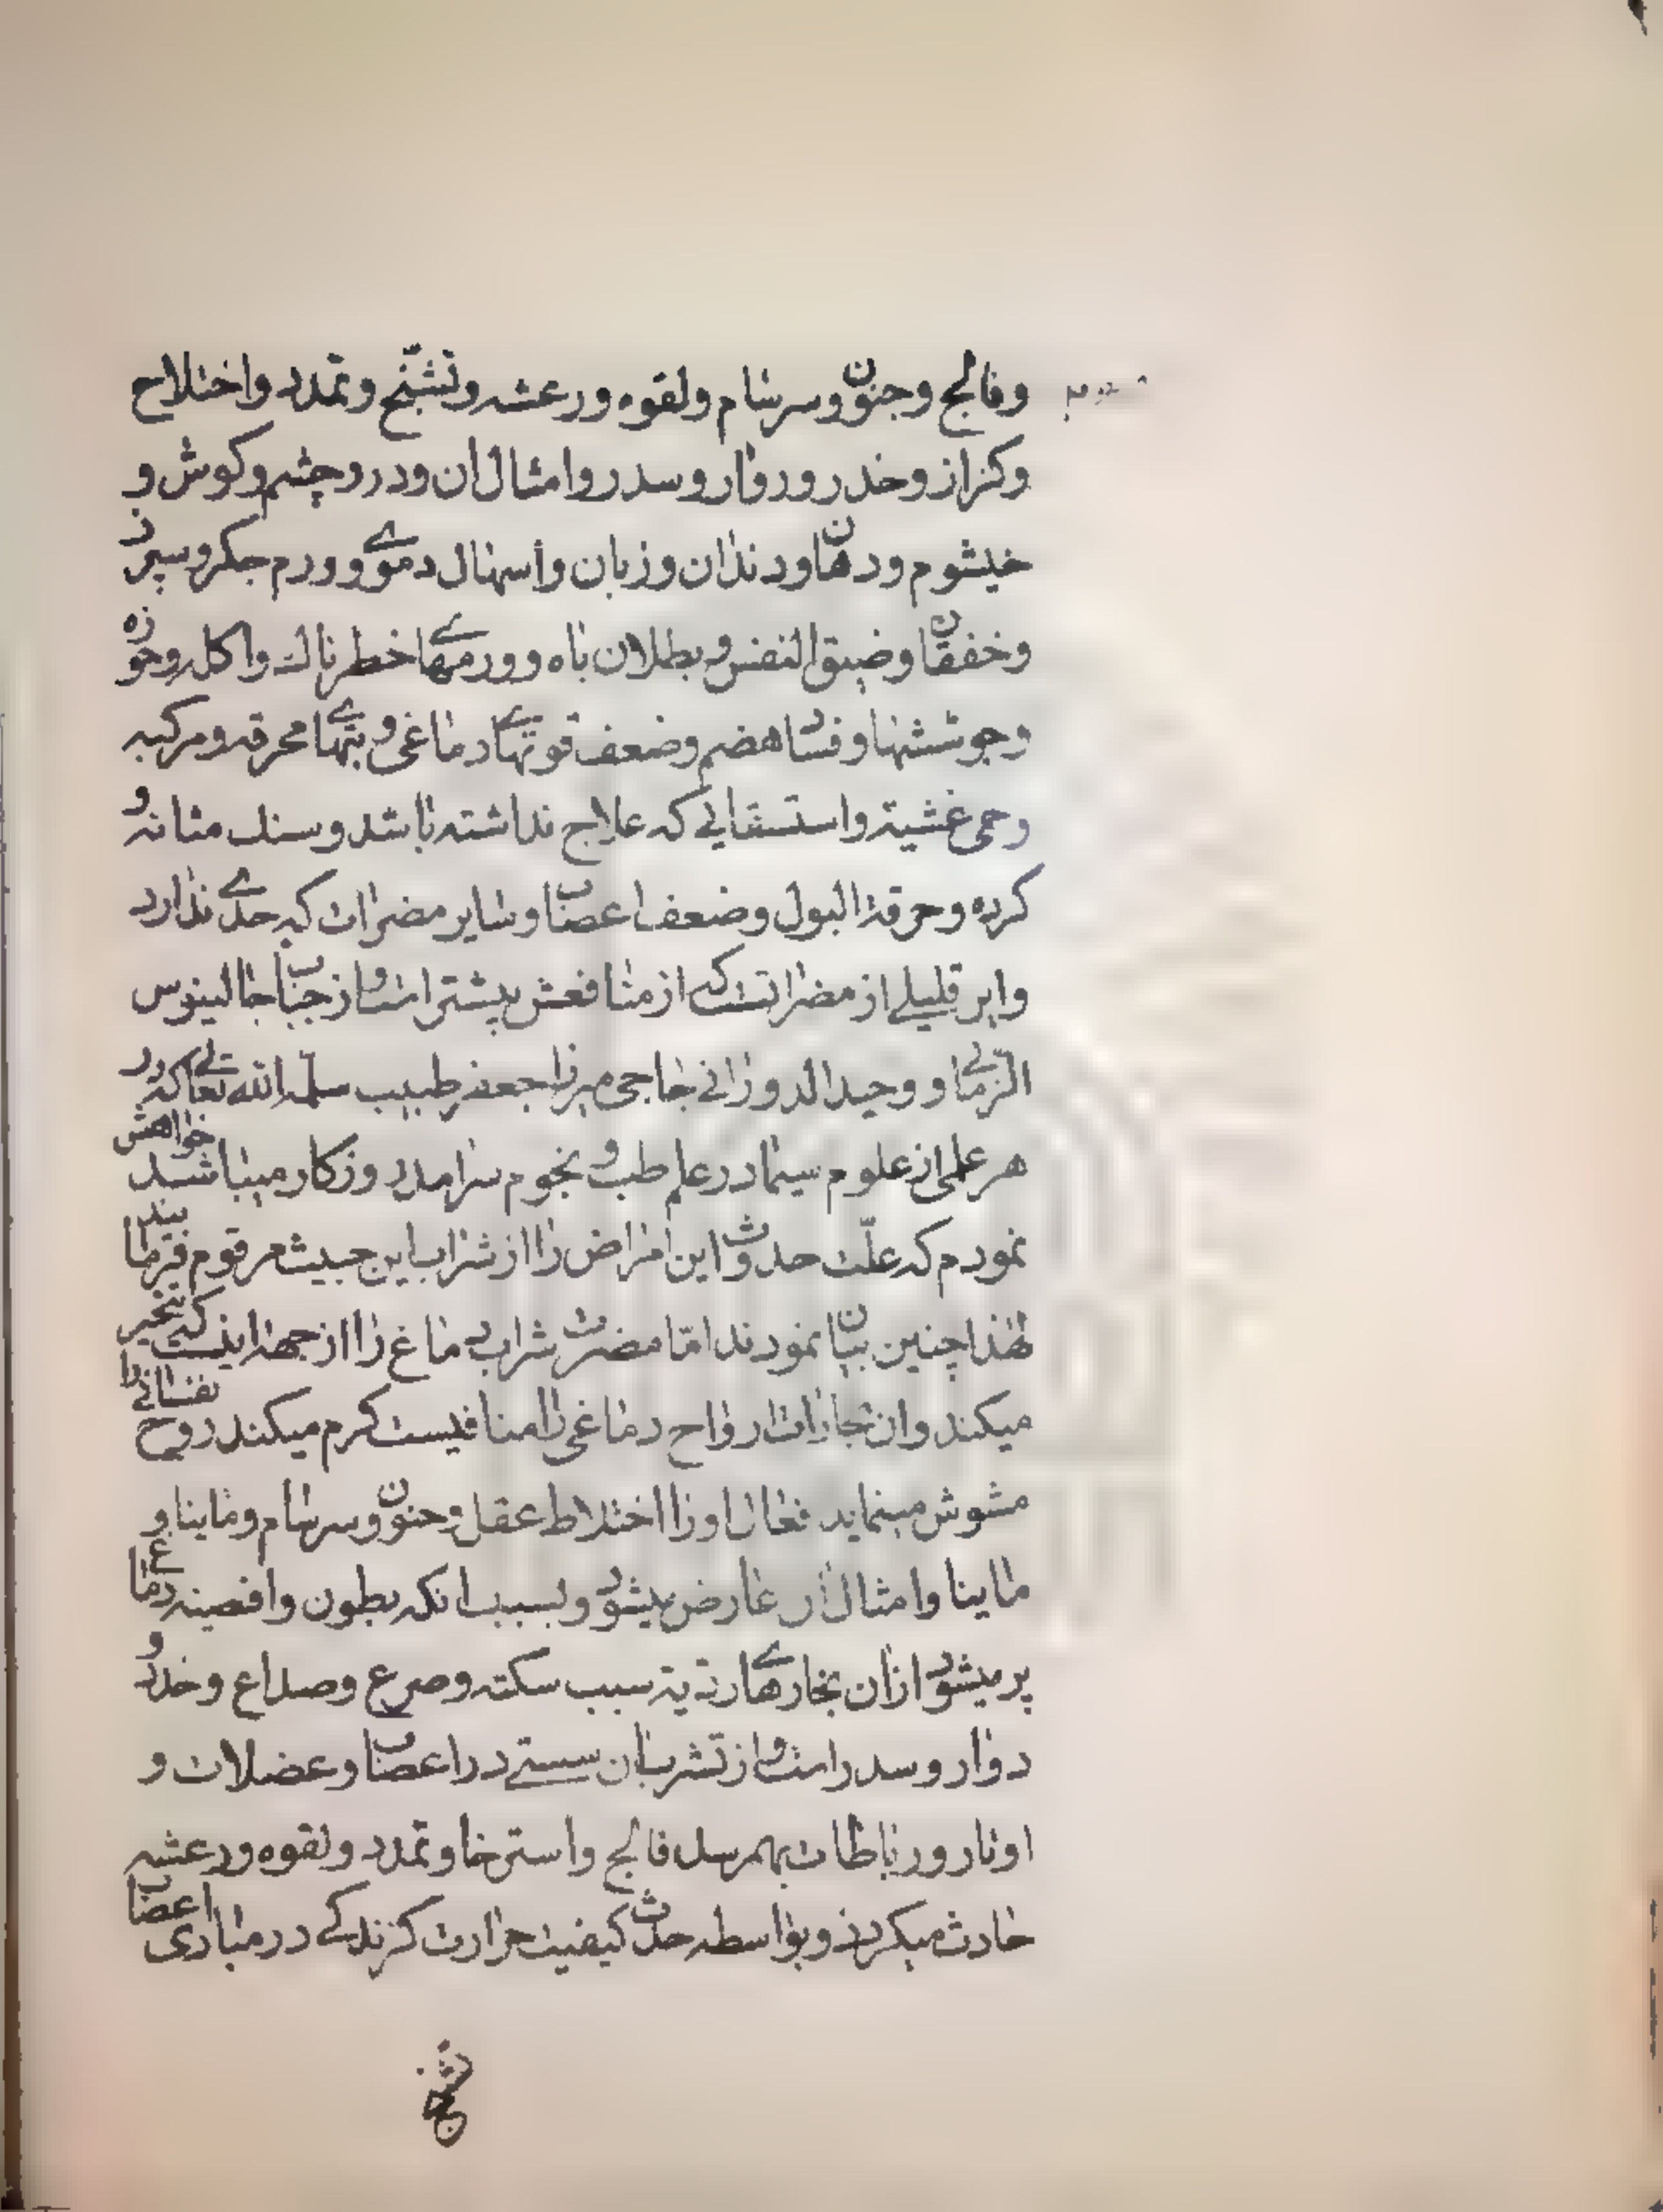 وفالج وجنون وسرسام ولقوه ورعشه وتشنّج وتمدد واختلاج
وكزاز وخدر ودوار وسدر وامثال ان ودرد چشم وكوش و
خيشوم ودهان ودندان وزبان واسهال دموے وورم جكر وسپرز
وخفقان وضيق النفس وبطلان باه وورمهاے خطرناك واكله وخوره
وجوششها وفساد هضم وضعف قوتهاے دماغى و تبهاے محرقه ومركبه
وحمى غشيته واستسقايے كه علاج نداشته باشد وسنك مثانه و
كرده وحرقة البول وضعف اعصاب وساير مضرات كه حدے ندارد
واين قليلے از مضراتست كه از منافعش بيشتر است و از جناب جالينوس
الزّمانے و وحيد الدورانے حاجى ميرزا جعفر طبيب سلّمه الله تعالے كه در
هر علمى از علوم سيما در علم طب و نجوم سرامد روزكار ميباشد خواهش
نمودم كه علّت حدوث اين امراض را از شراب اين خبيث مرقوم فرمايند
لهذا چنين بيان نمودند امّا مضرت شراب دماغ را از جهة اينست كه تبخير
ميكند وان بخارات ارواح دماغى را مناف‍يست كرم ميكند روح نفسانے را
مشوش مينمايد فعال او را اختلاط عقل وجنون وسرسام ومانيا و
مانيا وامثال ان عارض ميشود وبسبب انكه بطون وافضيه دماغ
پر ميشود ازان بخارهاے رديه سبب سكته وصرع وصداع وخدر و
دوار وسدر است و از تشرب ان سستے در اعصاب وعضلات و
اوتار ورباطات بهم رسد فالج واسترخا وتمدد ولقوه ورعشه
حادث ميكردد وبواسطه حدث كيفيت حرارت كزندكے در مبادى اعصاب
تشنج